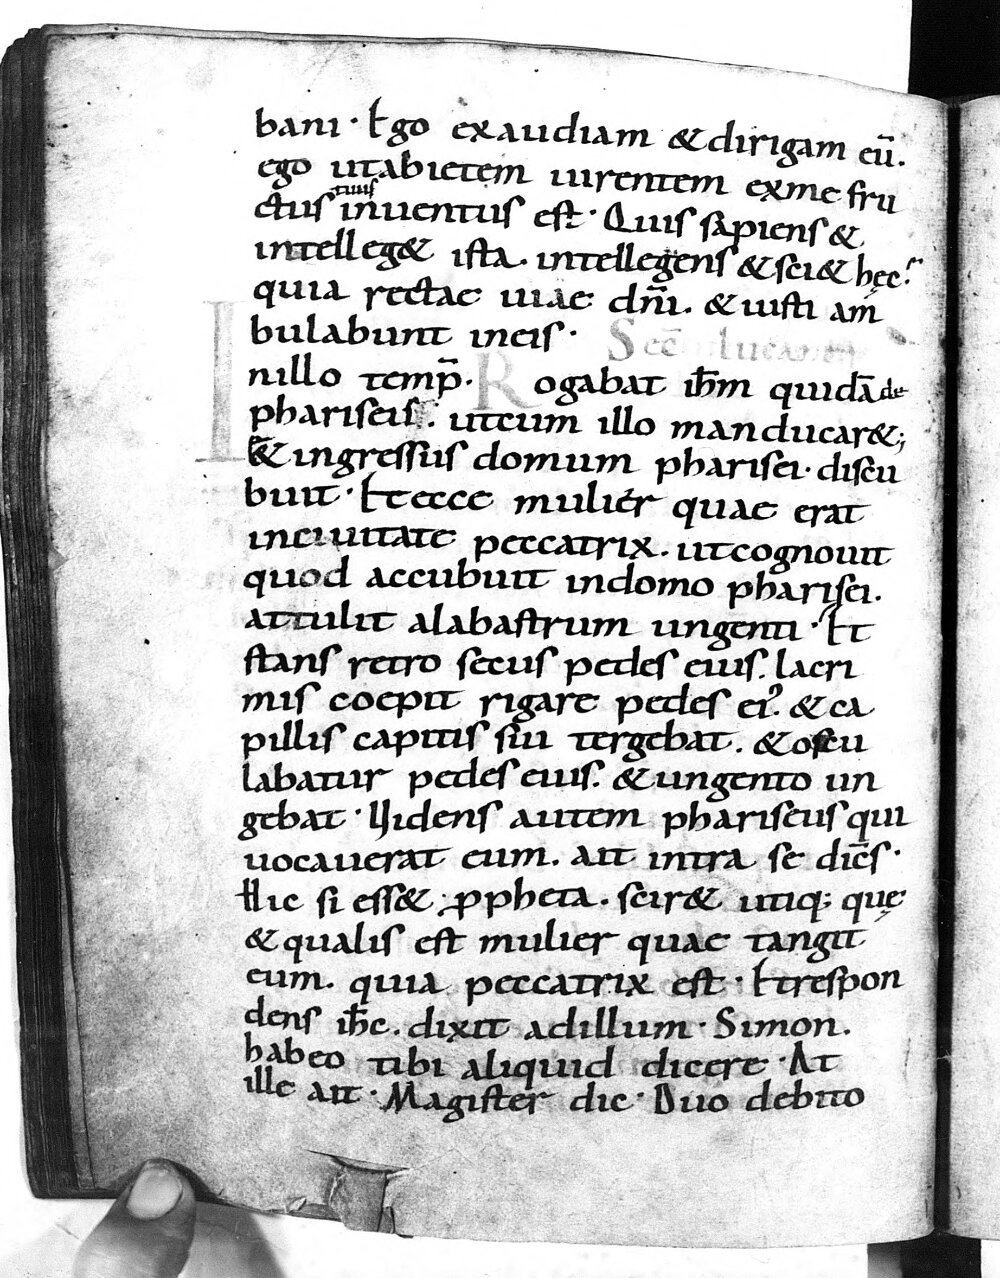 bani · Ego exaudiam & dirigam eū.
ego utabietem uirentem exme fru
ctus tuus inuentus est · Quis sapiens &
intelleg& ista. intellegens & sci& hęc?
quia rectae uiae dn̄i. & iusti am
bulabunt ineis ·
Sec̄ lucam
Inillo temp̄. Rogabat ih̄m quidā de
phariseis. uteum illo manducar&;
& ingressus domum pharisei · discu
buit · Et ecce mulier quae erat
inciuitate peccatrix. utcognouit
quod accubuit indomo pharisei.
attulit alabastrum ungenti · Et
stans retro secus pedes eius. lacri
mis coepit rigare pedes ei᾿. & ca
pillis capitis sui tergebat. & oscu
labatur pedes eius. & ungento un
gebat · Uidens autem phariseus qui
uocauerat eum. ait intra se dic̄s ·
Hic si ess& ꝓpheta. scir& utiq; quę
& qualis est mulier quae tangit
eum. quia peccatrix est · Et respon
dens ih̄c. dixit adillum · Simon.
habeo tibi aliquid dicere · At
ille ait · Magister dic · Duo debito